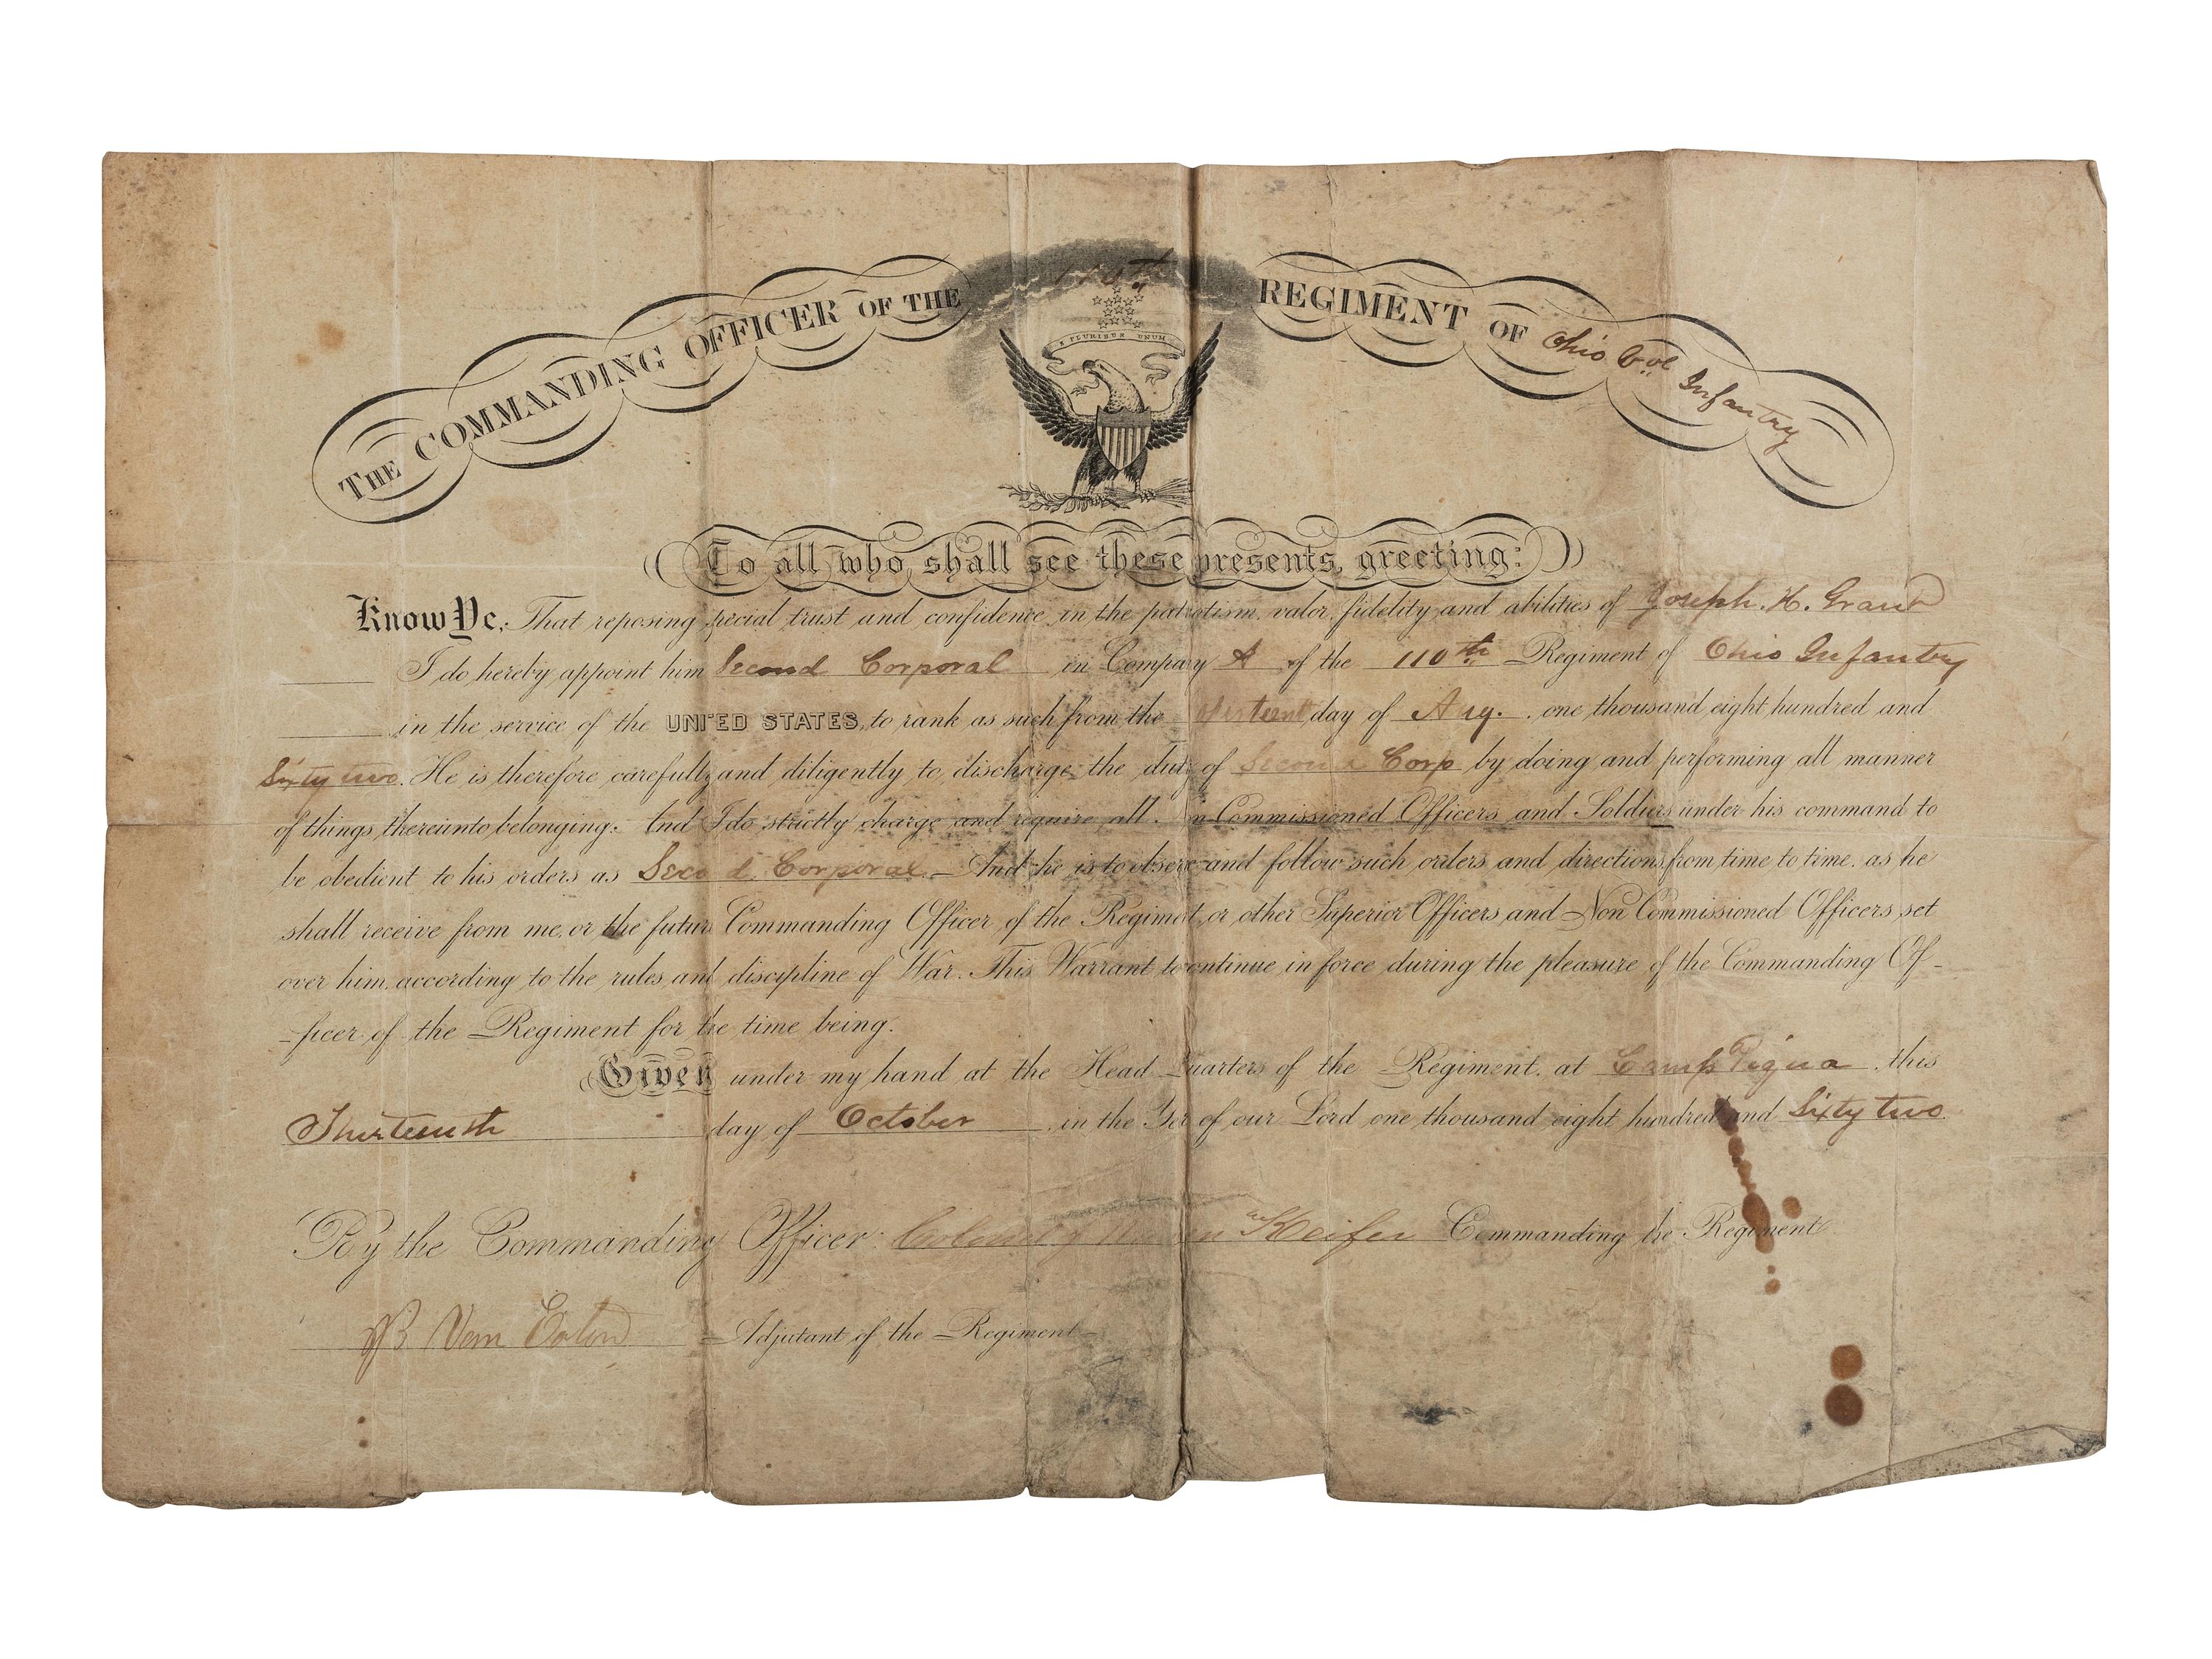 THE COMMANDING OFFICER OF THE 110th REGIMENT OF Ohio Vol Infantry
E PLURIBUS UNUM
To all who shall see these presents, greeting:
Know Ye, That reposing special trust and confidence in the patriotism, valor, fidelity and abilities of Joseph. H. Grant
I do hereby appoint him Second Corporal in Company A of the 110th Regiment of Ohio Infantry
in the service of the UNITED STATES, to rank as such from the day of Aug. , one thousand eight hundred and
Sixty two. He is therefore carefully and diligently to discharge the duty of Second Corp by doing and performing all manner
of things thereunto belonging. And I do strictly charge and require all Non-Commissioned Officers and Soldiers under his command to
be obedient to his orders as Second Corporal. And he is to observe and follow such orders and directions from time to time, as he
shall receive from me, or the future Commanding Officer of the Regiment, or other Superior Officers and Non Commissioned Officers set
over him, according to the rules and discipline of War. This Warrant to continue in force during the pleasure of the Commanding Of-
-ficer of the Regiment for the time being.
Given under my hand at the Head Quarters of the Regiment, at Camp Piqua, this
Thirteenth day of October in the Year of our Lord one thousand eight hundred and Sixty two.
By the Commanding Officer: Colonel J Warren Keifer Commanding the Regiment
Adjutant of the Regiment